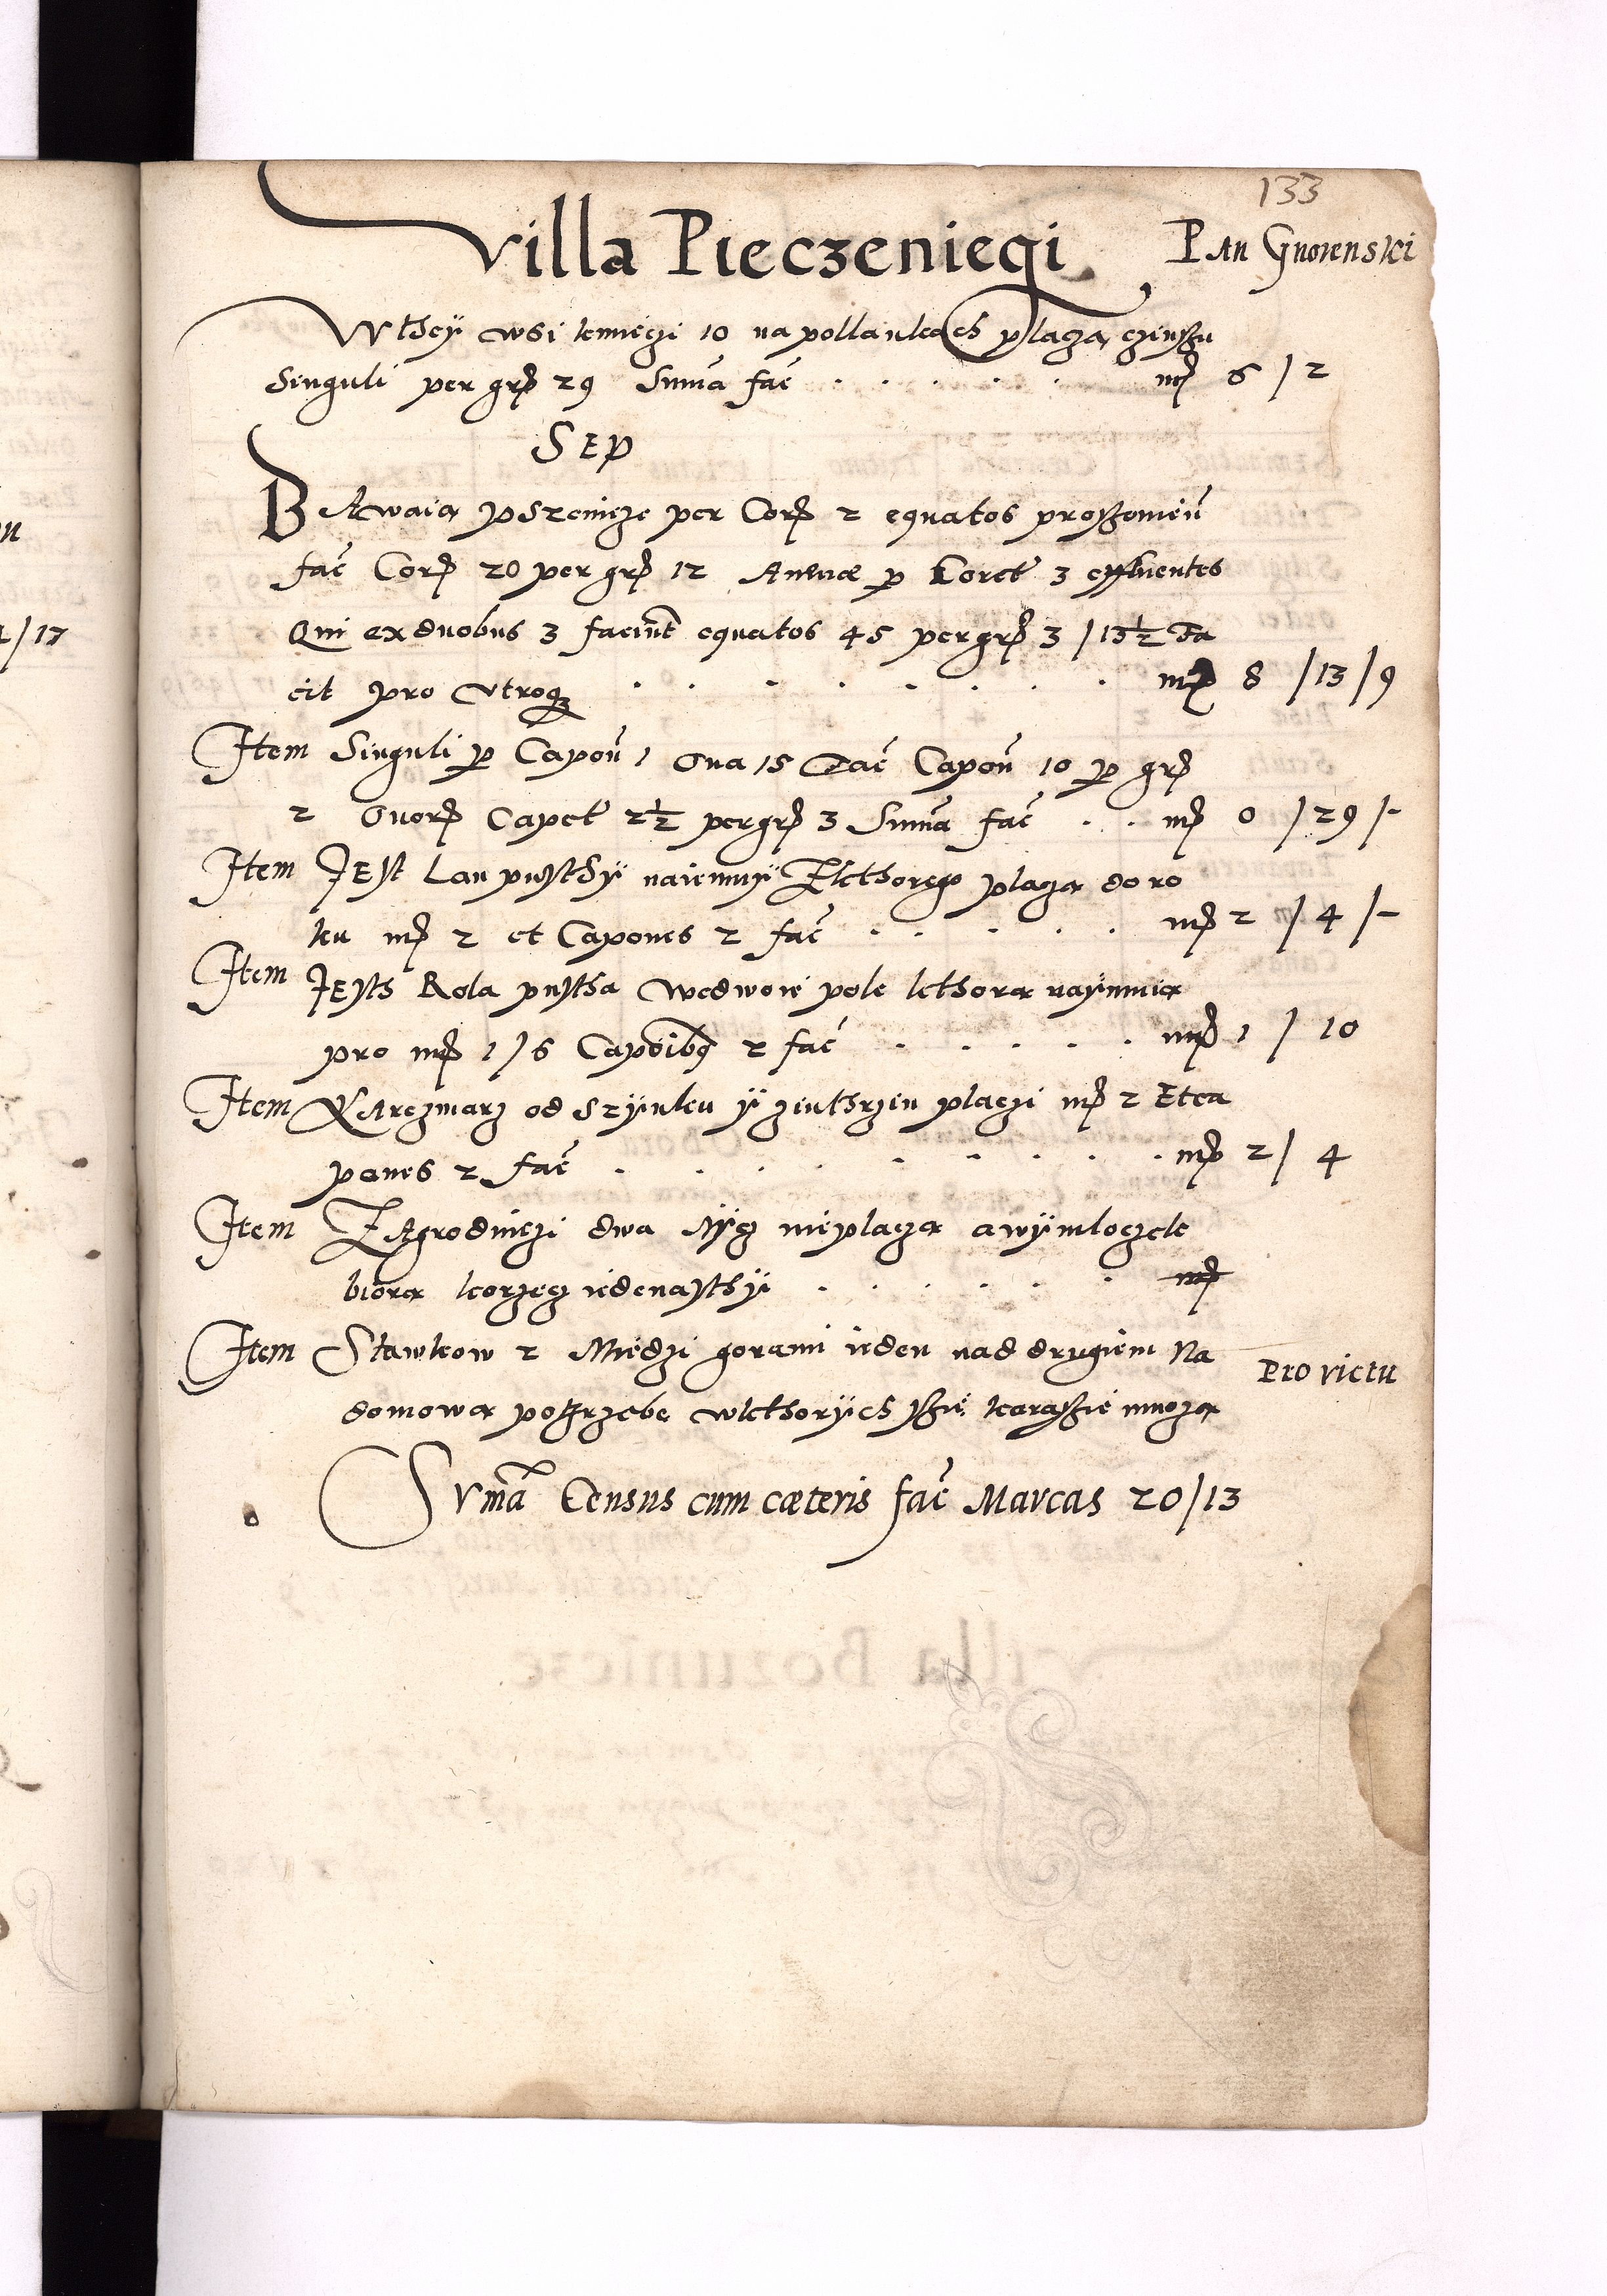 133
Villa Pieczeniegi
Pan Gnoienski
Wthey wsi kmieczi 10 na pollankach placza czinssu
Singuli per grs 29 Suma fac mrs 6 / 2
SEP
Dawaia pszenicze per Cors 2 equatos prossenieu
fac Cors 20 per grs 12 Auenæ p Coret 3 effluentes
Qui ex duobus 3 faciunt equatos 45 per grs 3 / 13½ Fa
cit pro vtroqz mrs 8 / 13 / 9
Item Singuli p Capon 1 Oua 15 Fac Capon 10 p grs
2 Ouors Capet 2½ per grs 3 Suma fac mrs 0 / 29 / -
Item Jest Lan pusthy naiemny Zkthorego placza do ro
ku mrs 2 et Capones 2 fac mrs 2 / 4 / -
Item Jesth Rola pustha wedwoie pole kthora naymuia
pro mrs 1 / 6 Caponibus 2 fac mrs 1 / 10
Item Karczmarz od szynku y ziuthrzin placzi mrs 2 Et ca
pones 2 fac mrs 2 / 4
Item Zagrodniczi dwa Nycz nieplacza a wymloczek
biora korzecz iedenasthy mrs
Item Stawkow 2 Miedzi gorami ieden nad drugiem Na
domowa potrzebe wkthorych ssie karassie mnoza
Pro victu
Suma Census cum cæteris fac Marcas 20/13
/ 17